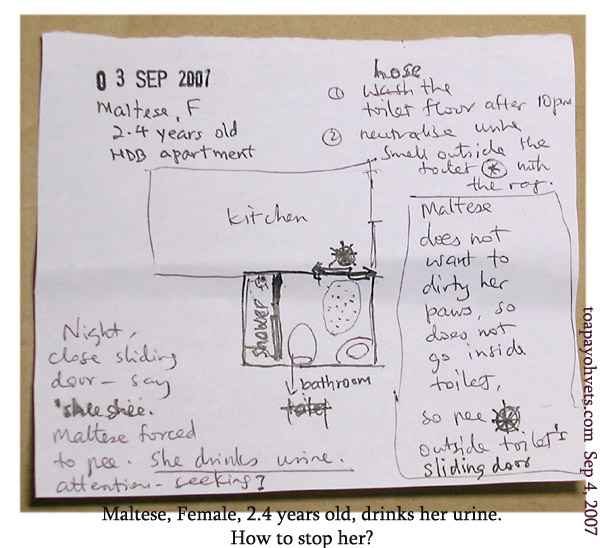 03 SEP 2007
Maltese, F
2.4 years old
HDB apartment
hose
① wash the
toilet floor after 10pm
② neutralise urine
smell outside the
toilet * with
the rag.
kitchen
shower
bathroom
toilet
Night,
close sliding
door – say
'shee shee.
Maltese forced
to pee. She drinks urine.
attention – seeking?
Maltese
does not
want to
dirty her
paws, so
does not
go inside
toilet,
so pee
outside toilet's
sliding door
toapayohvets.com Sep 4, 2007
Maltese, Female, 2.4 years old, drinks her urine.
How to stop her?